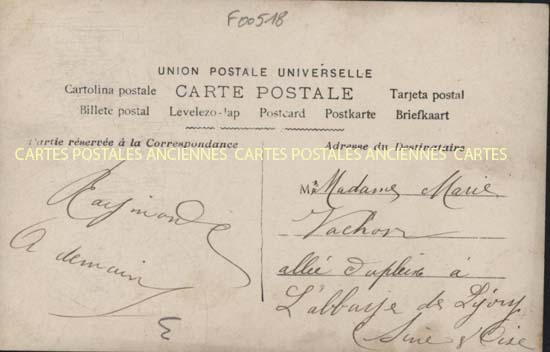 F00518
UNION POSTALE UNIVERSELLE
CARTE POSTALE
Cartolina postale
Tarjeta postal
Billete postal Levelezo-lap Postcard Postkarte Briefkaart
Partie réservée à la Correspondance
Adresse du Destinataire
CARTES POSTALES ANCIENNES CARTES POSTALES ANCIENNES CARTES
Raymond
A demain
M Madame Marie
Vachon
allée à
L'abbaye de
Seine & Oise